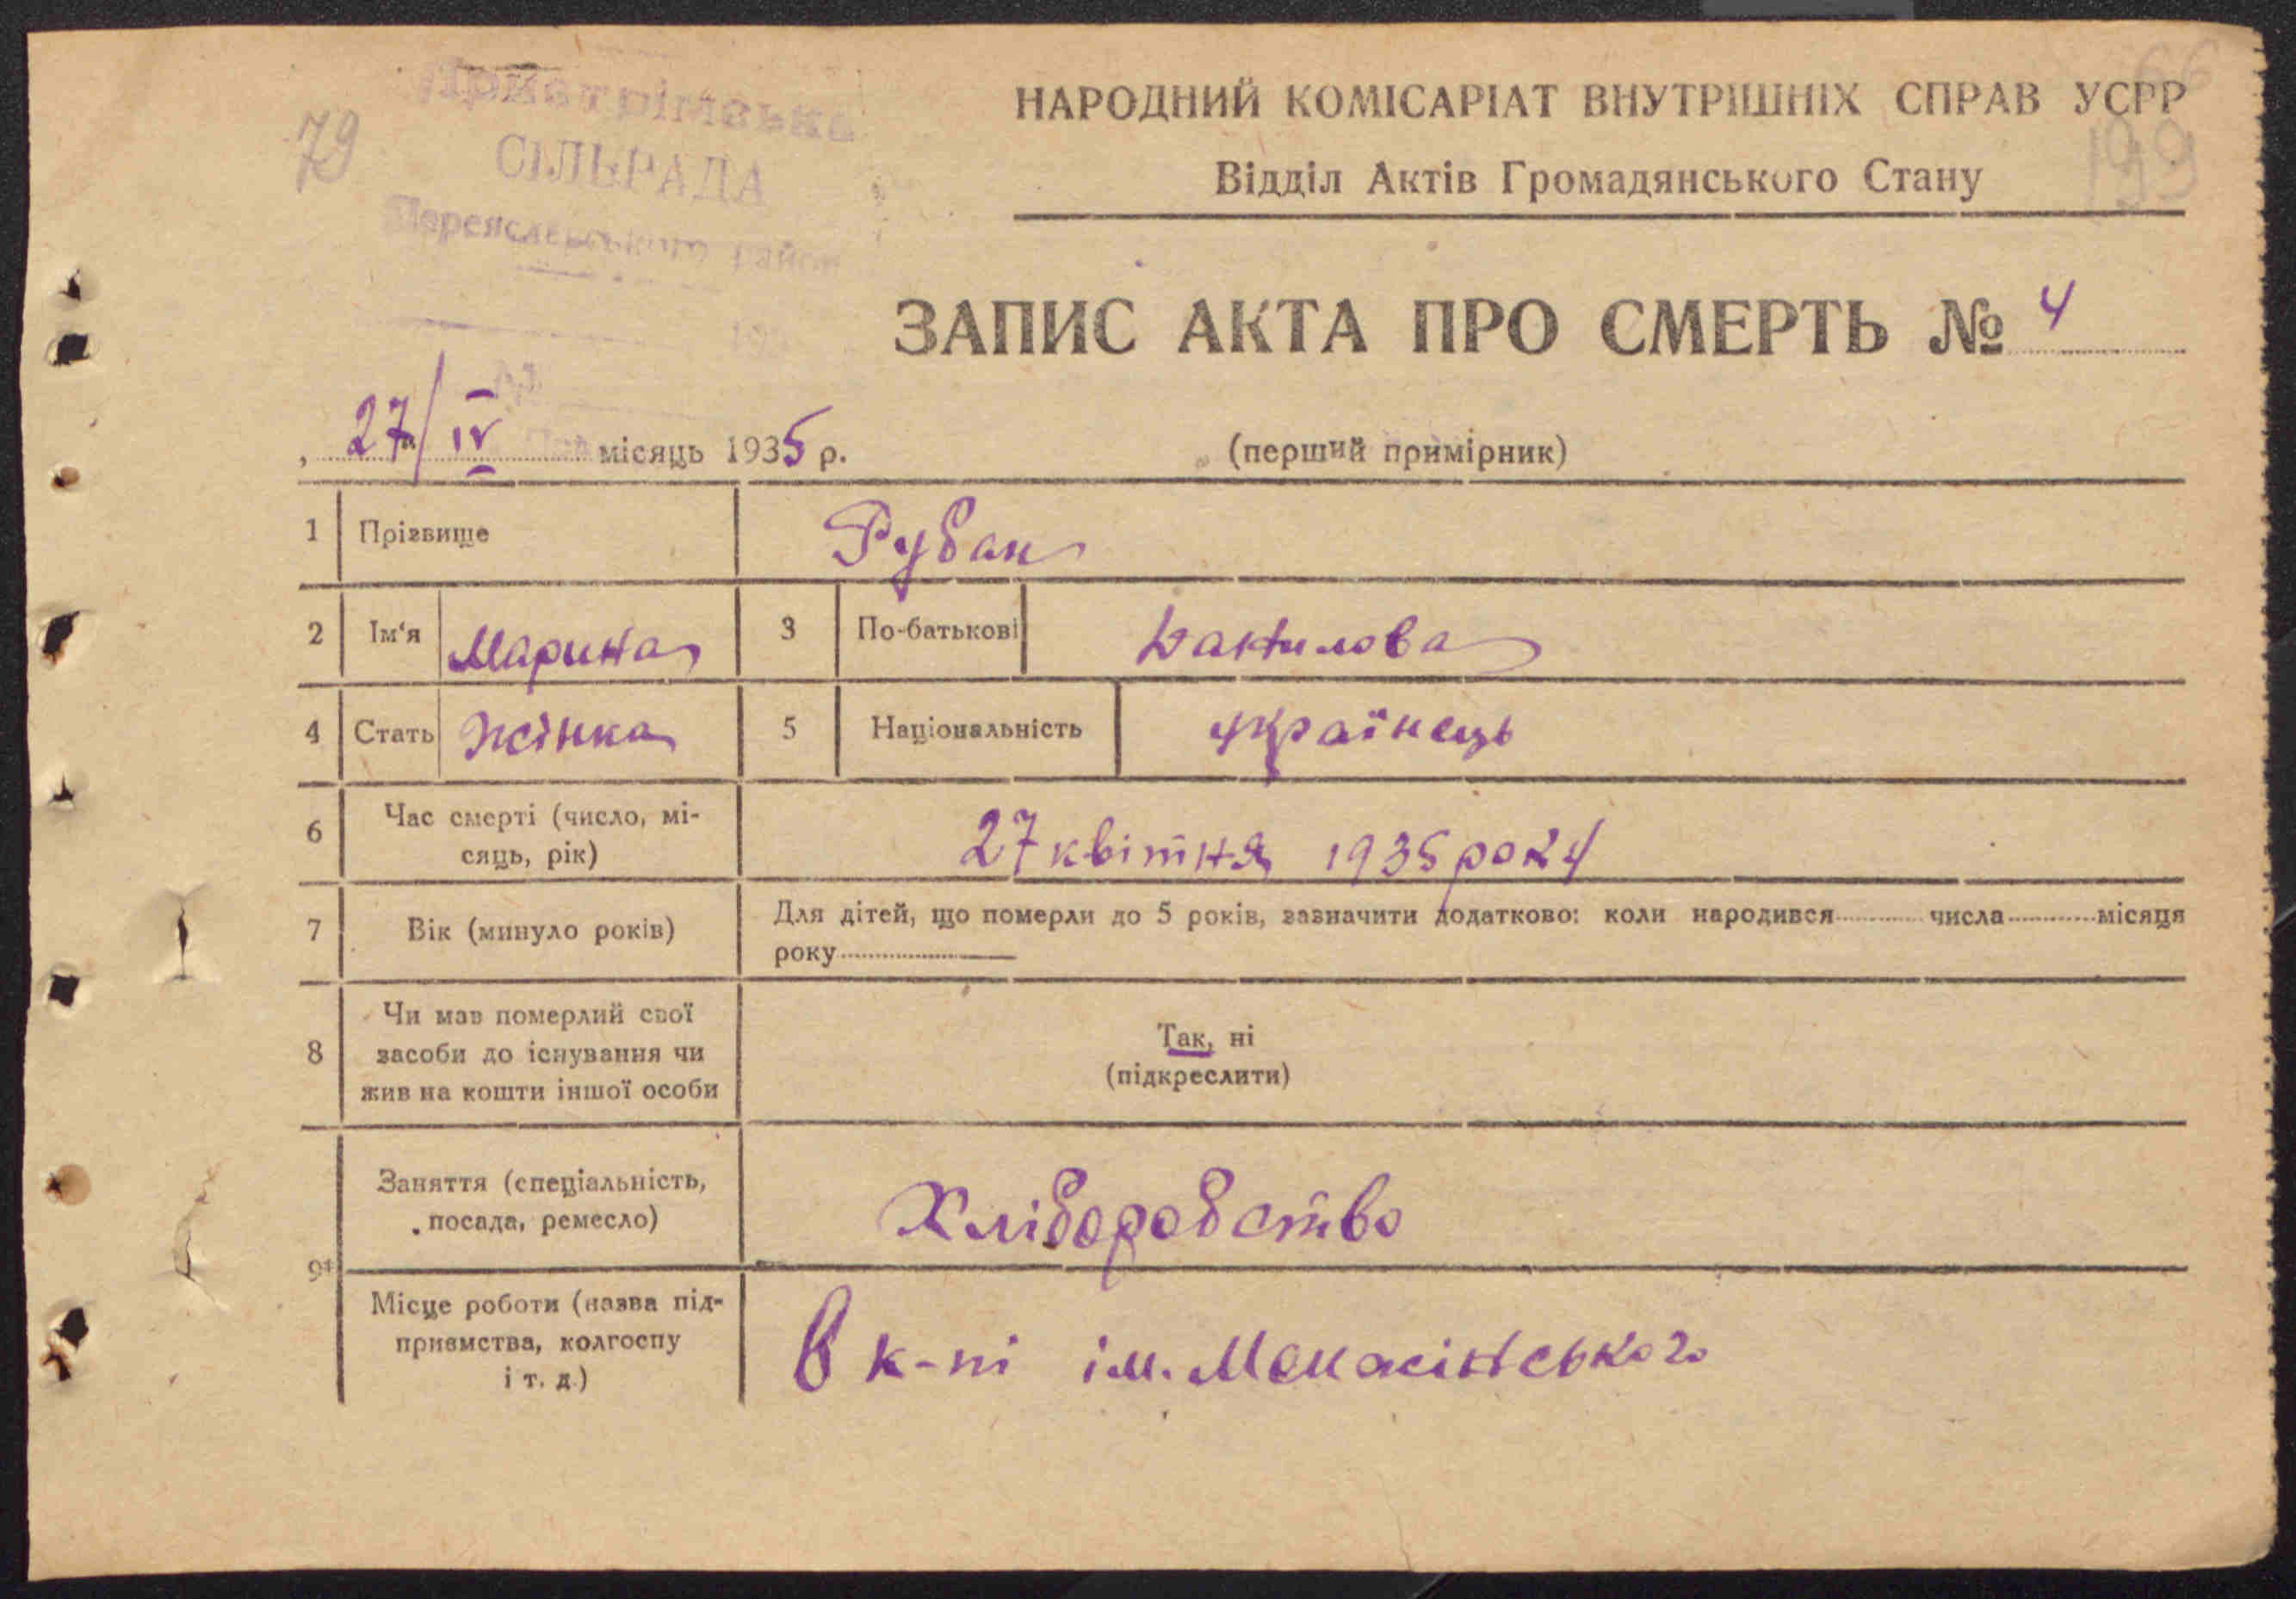 79
СІЛЬРАДА
Переяславського район
НАРОДНИЙ КОМІСАРІАТ ВНУТРІШНІХ СПРАВ УСРР
199
Відділ Актів Громадянського Стану
ЗАПИС АКТА ПРО СМЕРТЬ № 4
27/IV місяць 1935 р.
(перший примірник)
1 Прізвище Рубан
2 Ім'я Марина 3 По-батькові Данилова
4 Стать Жінка 5 Національність українець
6 Час смерті (число, мі-
сяць, рік) 27 квітня 1935 року
7 Вік (минуло років) Для дітей, що померли до 5 років, зазначити додатково: коли народився числа місяця
року
8 Чи мав померлий свої
засоби до існування чи
жив на кошти іншої особи
Так, ні
(підкреслити)
9 Заняття (спеціальність,
посада, ремесло) Хліборобство
Місце роботи (назва під-
приємства, колгоспу
і т. д.) В к-пі ім. Менжінського